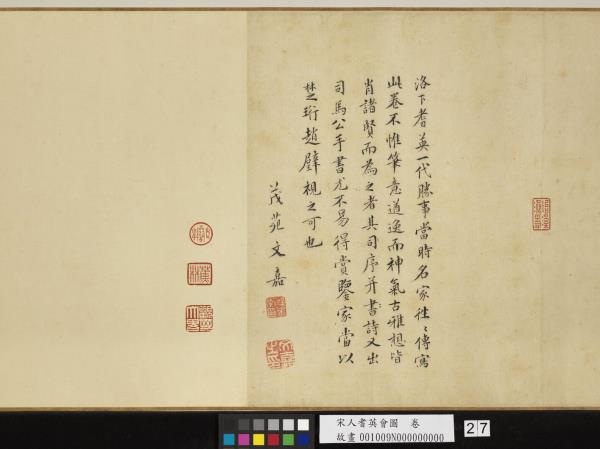 洛下耆英一代勝事當時名家往〻傳寫
此卷不惟筆意遒逸而神氣古雅想皆
肖諸賢而為之者其司序并書詩又出
司馬公手書尤不易得賞鑒家當以
楚珩趙璧視之可也
茂苑文嘉
宋人耆英會圖 卷
故畫 001009N000000000
27